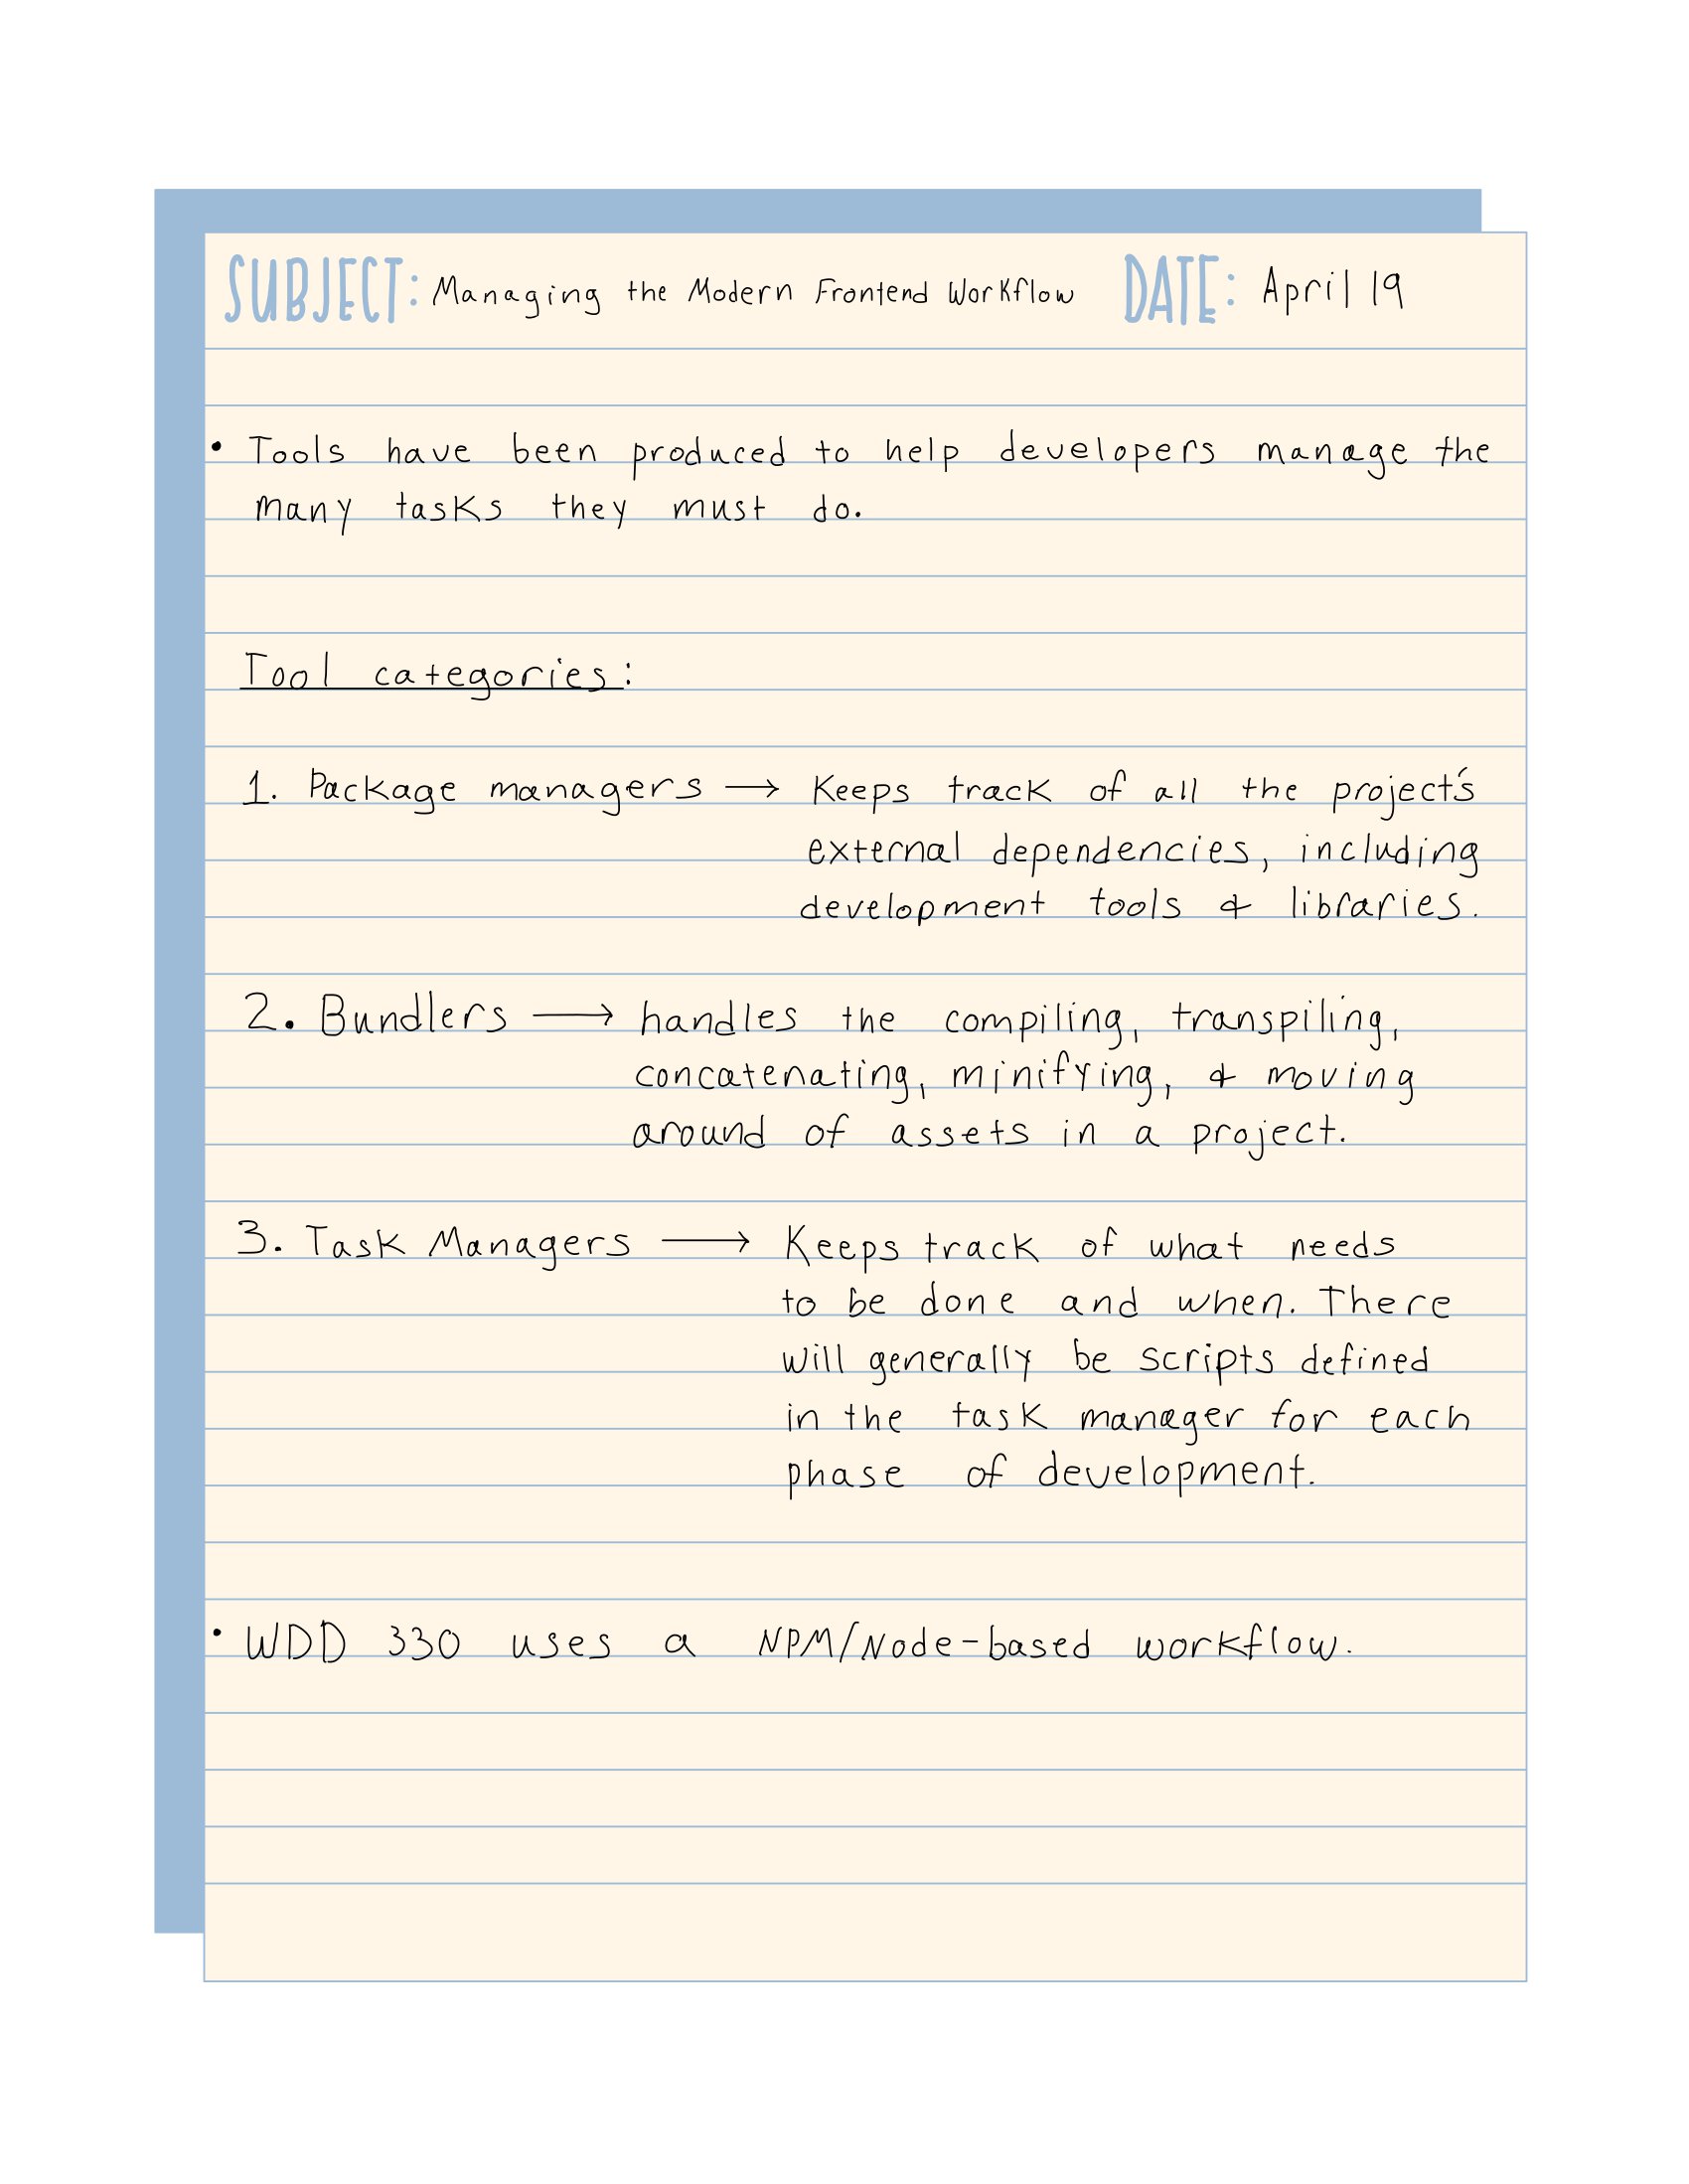 SUBJECT: Managing the Modern Frontend Workflow DATE: April 19
• Tools have been produced to help developers manage the
many tasks they must do.
Tool categories:
1. Package managers → Keeps track of all the project's
external dependencies, including
development tools & libraries.
2. Bundlers → handles the compiling, transpiling,
concatenating, minifying, & moving
around of assets in a project.
3. Task Managers → Keeps track of what needs
to be done and when. There
will generally be scripts defined
in the task manager for each
phase of development.
• WDD 330 uses a NPM/Node-based workflow.